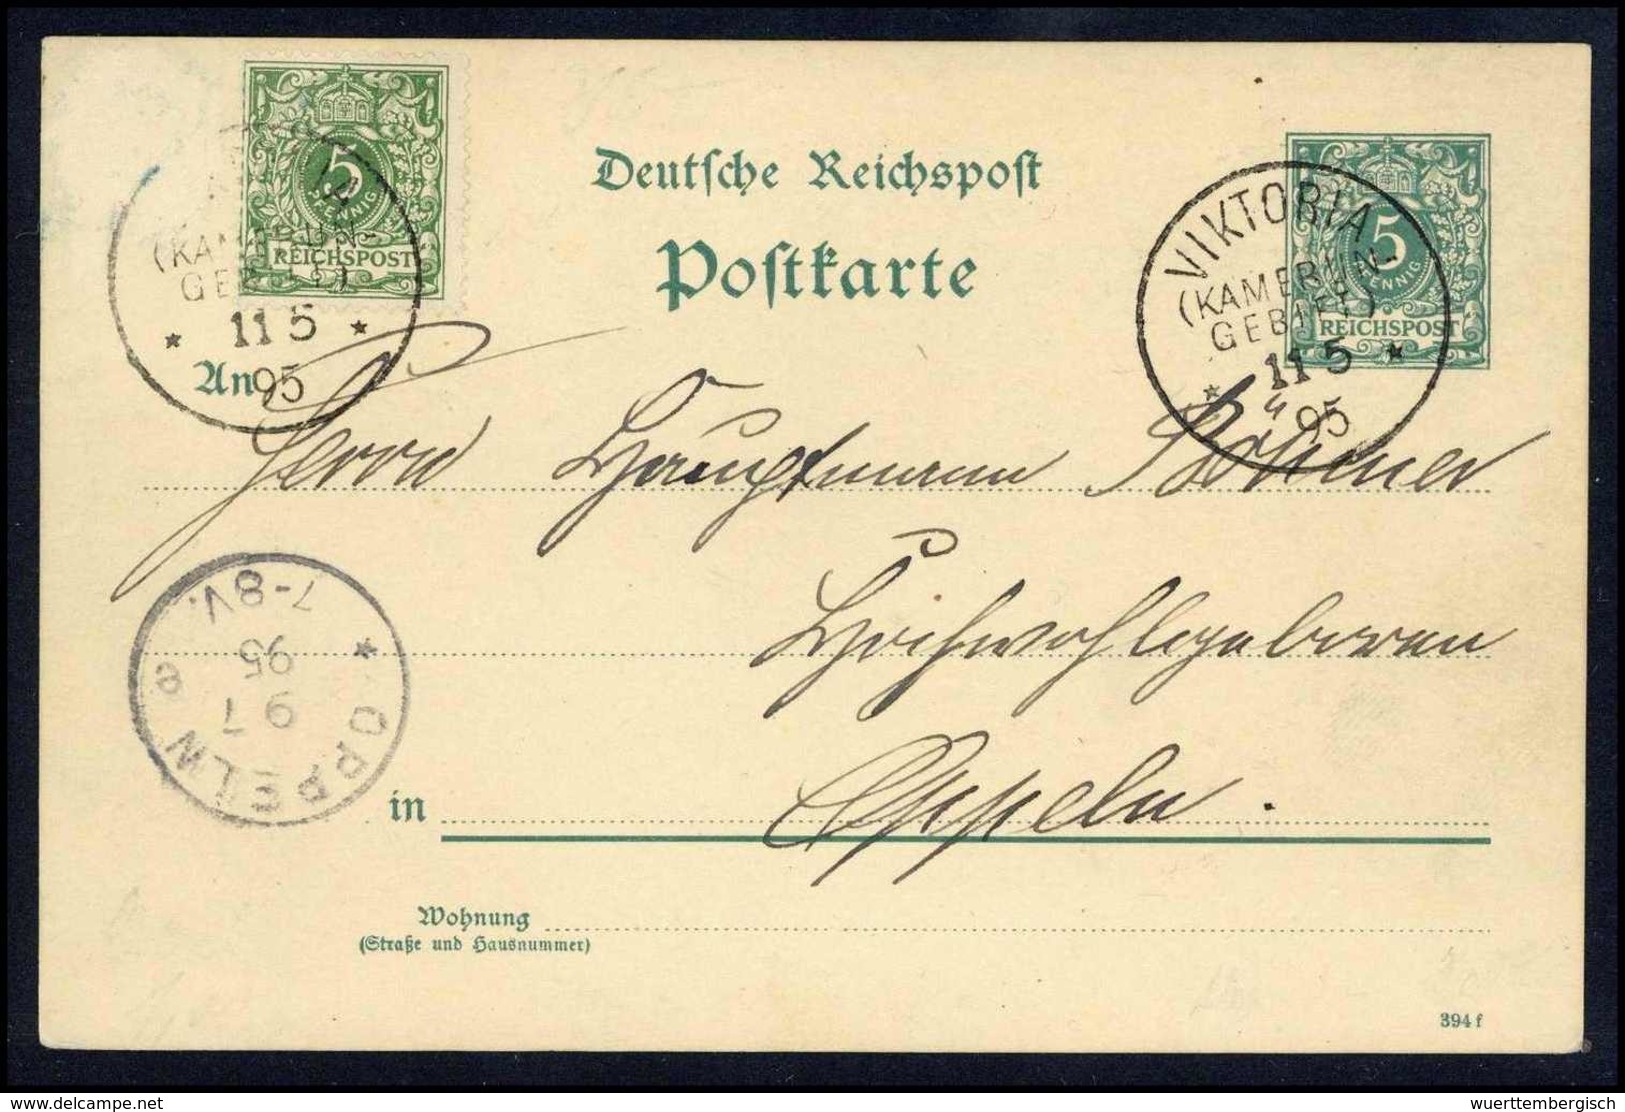 5
PFENNIG
REICHSPOST
(KAMERUN-
GEBIET)
* 11 5 *
95
Deutsche Reichspost
Postkarte
VIKTORIA
(KAMERUN-
GEBIET)
* 11 5 *
95
5
PFENNIG
REICHSPOST
An
Herrn Hauptmann Böhmer
Hochwohlgeboren
* OPPELN e
9 7
95
7-8V.
in Oppeln.
Wohnung
(Straße und Hausnummer)
394 f
© www.delcampe.net
wuerttembergisch